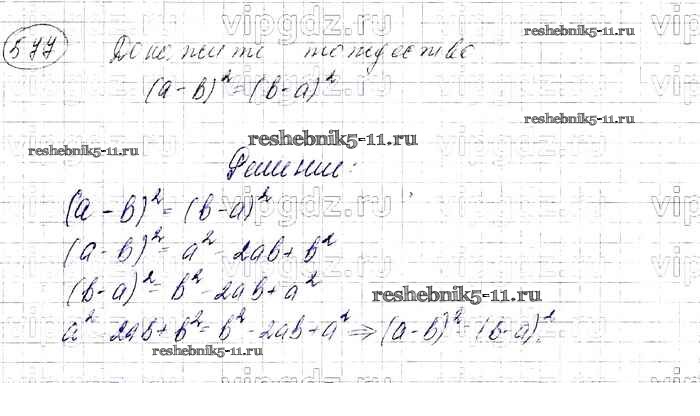 577 Докажите тождество
(a - b)² = (b - a)²
Решение:
(a - b)² = (b - a)²
(a - b)² = a² - 2ab + b²
(b - a)² = b² - 2ab + a²
a² - 2ab + b² = b² - 2ab + a² ⇒ (a - b)² = (b - a)².
vipgdz.ru
reshebnik5-11.ru
reshebnik5-11.ru
reshebnik5-11.ru
reshebnik5-11.ru
reshebnik5-11.ru
reshebnik5-11.ru